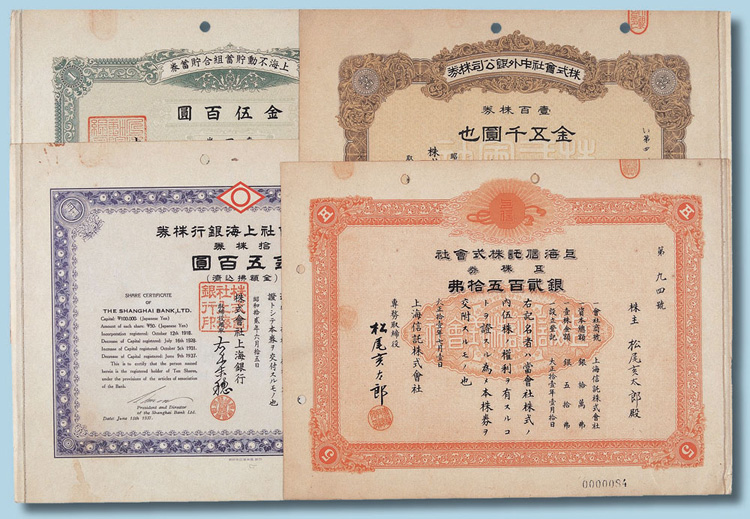 上海不動貯蓄組合貯蓄券
金伍百圓
株式會社中外銀公司株券
壹百株券
金五千圓也
社上海銀行株券
拾株券
五百圓
(金額拂込濟)
SHARE CERTIFICATE
OF
THE SHANGHAI BANK, LTD.
Capital: ¥100,000. (Japanese Yen)
Amount of each share: ¥50. (Japanese Yen)
Incorporation registered: October 12th 1918.
Decrease of Capital registered: July 16th 1928.
Increase of Capital registered: October 5th 1931.
Decrease of Capital registered: June 9th 1937.
This is to certify that the person named
herein is the registered holder of Ten Shares,
under the provisions of the articles of association
of the Bank.
President and Director
of the Shanghai Bank Ltd.
Date: June 15th 1937.
證トシテ本券ヲ交付スルモノ也
昭和拾貳年六月拾五日
株式會社上海銀行
上海信託株式會社
五株券
銀貳百五拾弗
第九四號
株主 松尾亥太郎殿
一會社商號 上海信託株式會社
資本總額 銀拾萬弗
壹株金額 銀五拾弗
一設立登記 大正拾壹年壹月拾日
右記名者ハ當會社株式ノ
内五株ノ權利ヲ有スルコ
トヲ證スル爲メ本株券ヲ
交付スルモノ也
大正拾壹年七月壹日
上海信託株式會社
專務取締役
松尾亥太郎
0000084